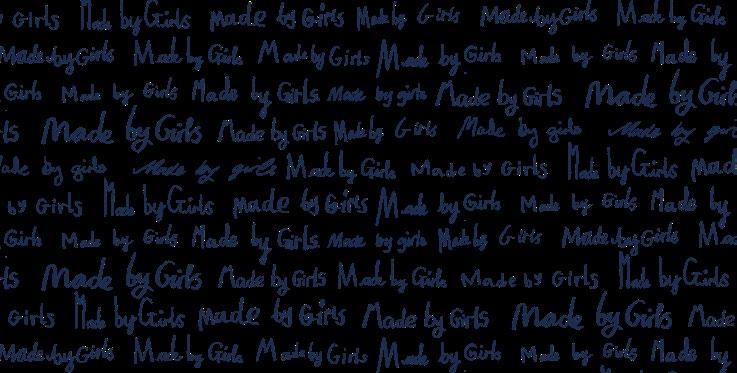 Girls Made by Girls made by Girls Made by Girls Made by Girls Made by Girls
Made by Girls Made by Girls Made by Girls Made by Girls Made by Girls Made by
Girls Made by Girls Made by Girls Made by girls Made by Girls Made by Girls
Made by Girls Made by Girls Made by Girls Made by girls Made by
by girls Made by girls Made by Girls Made by Girls Made by Girls
by Girls Made by Girls made by Girls Made by Girls Made by Girls Made by
Girls Made by Girls Made by Girls Made by girls Made by Girls Made by Girls
Made by Girls Made by Girls Made by Girls Made by Girls Made by Girls
Girls Made by Girls made by Girls Made by Girls Made by Girls Made
Made by Girls Made by Girls Made by Girls Made by Girls Made by Girls Made by